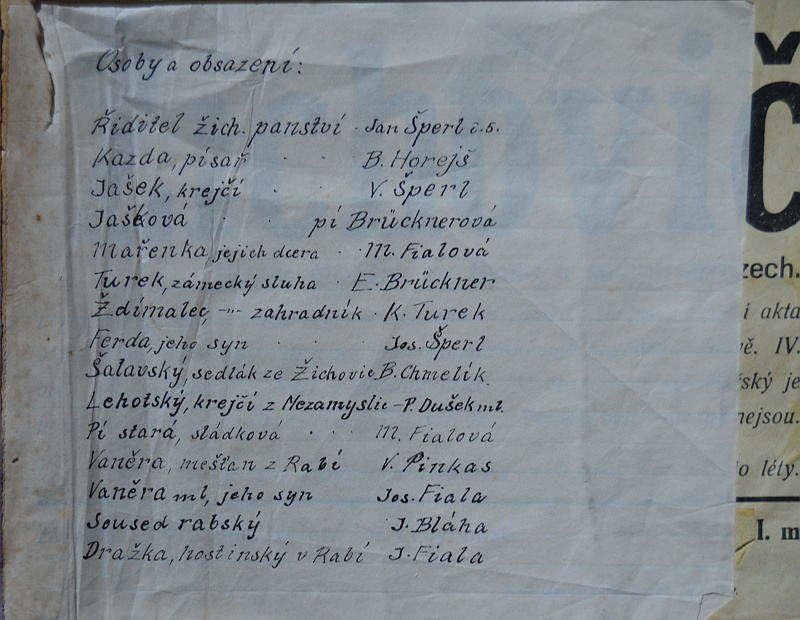 Osoby a obsazení:
Řiditel žich. panství - Jan Šperl č.5.
Kazda, písař · · B. Horejš
Jašek, krejčí · · V. Šperl
Jašková · · pí Brücknerová
Mařenka, jejich dcera · M. Fialová
Turek, zámecký sluha · E. Brückner
Ždímalec, -"- zahradník · K. Turek
Ferda, jeho syn · · Jos. Šperl
Šatavský, sedlák ze Žichovic B. Chmelík
Lehotský, krejčí z Nezamyslic - P. Dušek ml.
Pí stará, sládková · · · M. Fialová
Vaněra, mešťan z Rabí V. Pinkas
Vaněra ml, jeho syn Jos. Fiala
Soused rabský J. Bláha
Dražka, hostinský v Rabí J. Fiala
Č
zech.
í akta
ě. IV.
ský je
nejsou.
o léty.
I. m